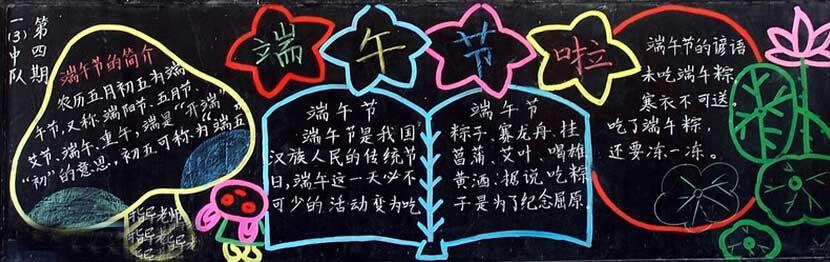 第四期
一(3)中队
端午节啦
端午节的简介
农历五月初五为端
午节,又称端阳节、五月节、
艾节、端午、重午,端是“开端”
“初”的意思。初五可称为“端五
指导老师
端午节
端午节是我国
汉族人民的传统节
日,端午这一天必不
可少的活动变为吃
端午节
粽子、赛龙舟、挂
菖蒲、艾叶、喝雄
黄酒。据说吃粽
子是为了纪念屈原
端午节的谚语
未吃端午粽,
寒衣不可送。
吃了端午粽,
还要冻一冻。